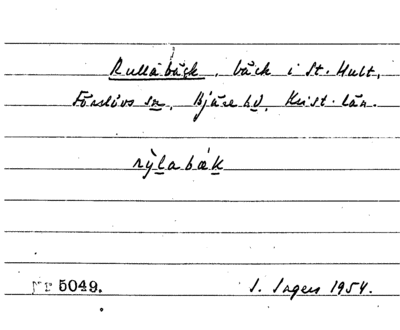 Rullabäck, bäck i St. Hult,
Förslövs sn, Bjäre hd, Krist. län.
rỳlabǽk
Nr 5049.
I. Ingers 1954.